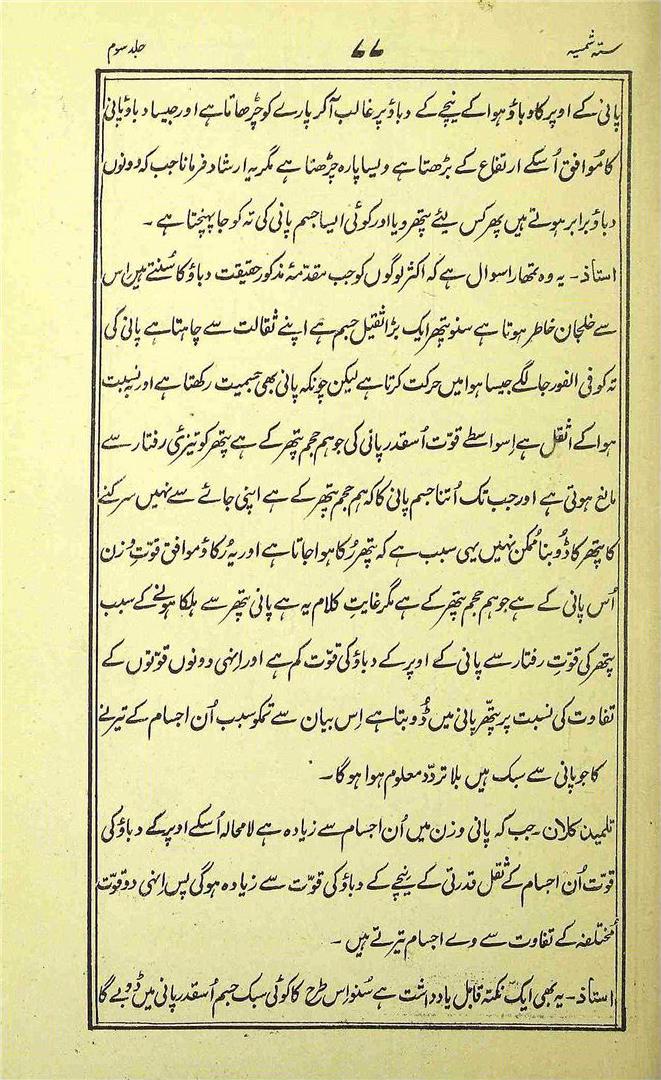 ستہ شمسیہ ۷۷ جلد سوم
پانی کے اوپر کا دباؤ ہوا کے نیچے کے دباؤ پر غالب آکر پارے کو چڑھاتا ہے اور جیسا دباؤ پانی
کا مُوافق اُسکے ارتفاع کے بڑھتا ہے ویسا پارہ چڑھتا ہے مگر یہ ارشاد فرمانا جب کہ دونوں
دباؤ برابر ہوتے ہیں پھر کس لیئے پتھر ویا اور کوئی ایسا جسم پانی کی تہ کو جا پہنچتا ہے ۔
استاذ ۔ یہ وہ تمھارا سوال ہے کہ اکثر لوگوں کو جب مقدّمۂ مذکور حقیقت دباؤ کا سُنتے ہیں اِس
سے خلجان خاطر ہوتا ہے سنو پتھر ایک بڑا ثقیل جسم ہے اپنے ثقالت سے چاہتا ہے پانی کی
تہ کو فی الفور جا لگے جیسا ہوا میں حرکت کرتا ہے لیکن چونکہ پانی بھی جسمیت رکھتا ہے اور نسبت
ہوا کے اثقل ہے اِسواسطے قوّت اُسقدر پانی کی جو ہم حجم پتھر کے ہے پتھر کو تیزئی رفتار سے
مانع ہوتی ہے اور جب تک اُتنا جسم پانی کا کہ ہم حجم پتھر کے ہے اپنی جائے سے نہیں سرکنے
کا پتھر کا ڈُوبنا مُمکن نہیں یہی سبب ہے کہ پتھر رُکا ہوا جاتا ہے اور یہ رُکاؤ موافق قوّتِ وزن
اُس پانی کے ہے جو ہم حجم پتھر کے ہے مگر غایتِ کلام یہ ہے پانی پتھر سے ہلکا ہونے کے سبب
پتھر کی قوّتِ رفتار سے پانی کے اوپر کے دباؤ کی قوّت کم ہے اور اِنہی دونوں قوّتوں کے
تفاوت کی نسبت پر پتھّر پانی میں ڈُوبتا ہے اِس بیان سے تمکو سبب اُن اجسام کے تیرنے
کا جو پانی سے سبک ہیں بلا تردّد معلوم ہوا ہو گا ۔
تلمیذ کلان ۔ جب کہ پانی وزن میں اُن اجسام سے زیادہ ہے لامحالہ اُسکے اوپر کے دباؤ کی
قوّت اُن اجسام کے ثقل قدرتی کے نیچے کے دباؤ کی قوّت سے زیادہ ہوگی پس اِنہی دو قوّت
مُختلفہ کے تفاوت سے وے اجسام تیرتے ہیں ۔
استاذ ۔ یہ بھی ایک نکتہ قابل یادداشت ہے سُنو اِس طرح کا کوئی سبک جسم اُسقدر پانی میں ڈوبے گا